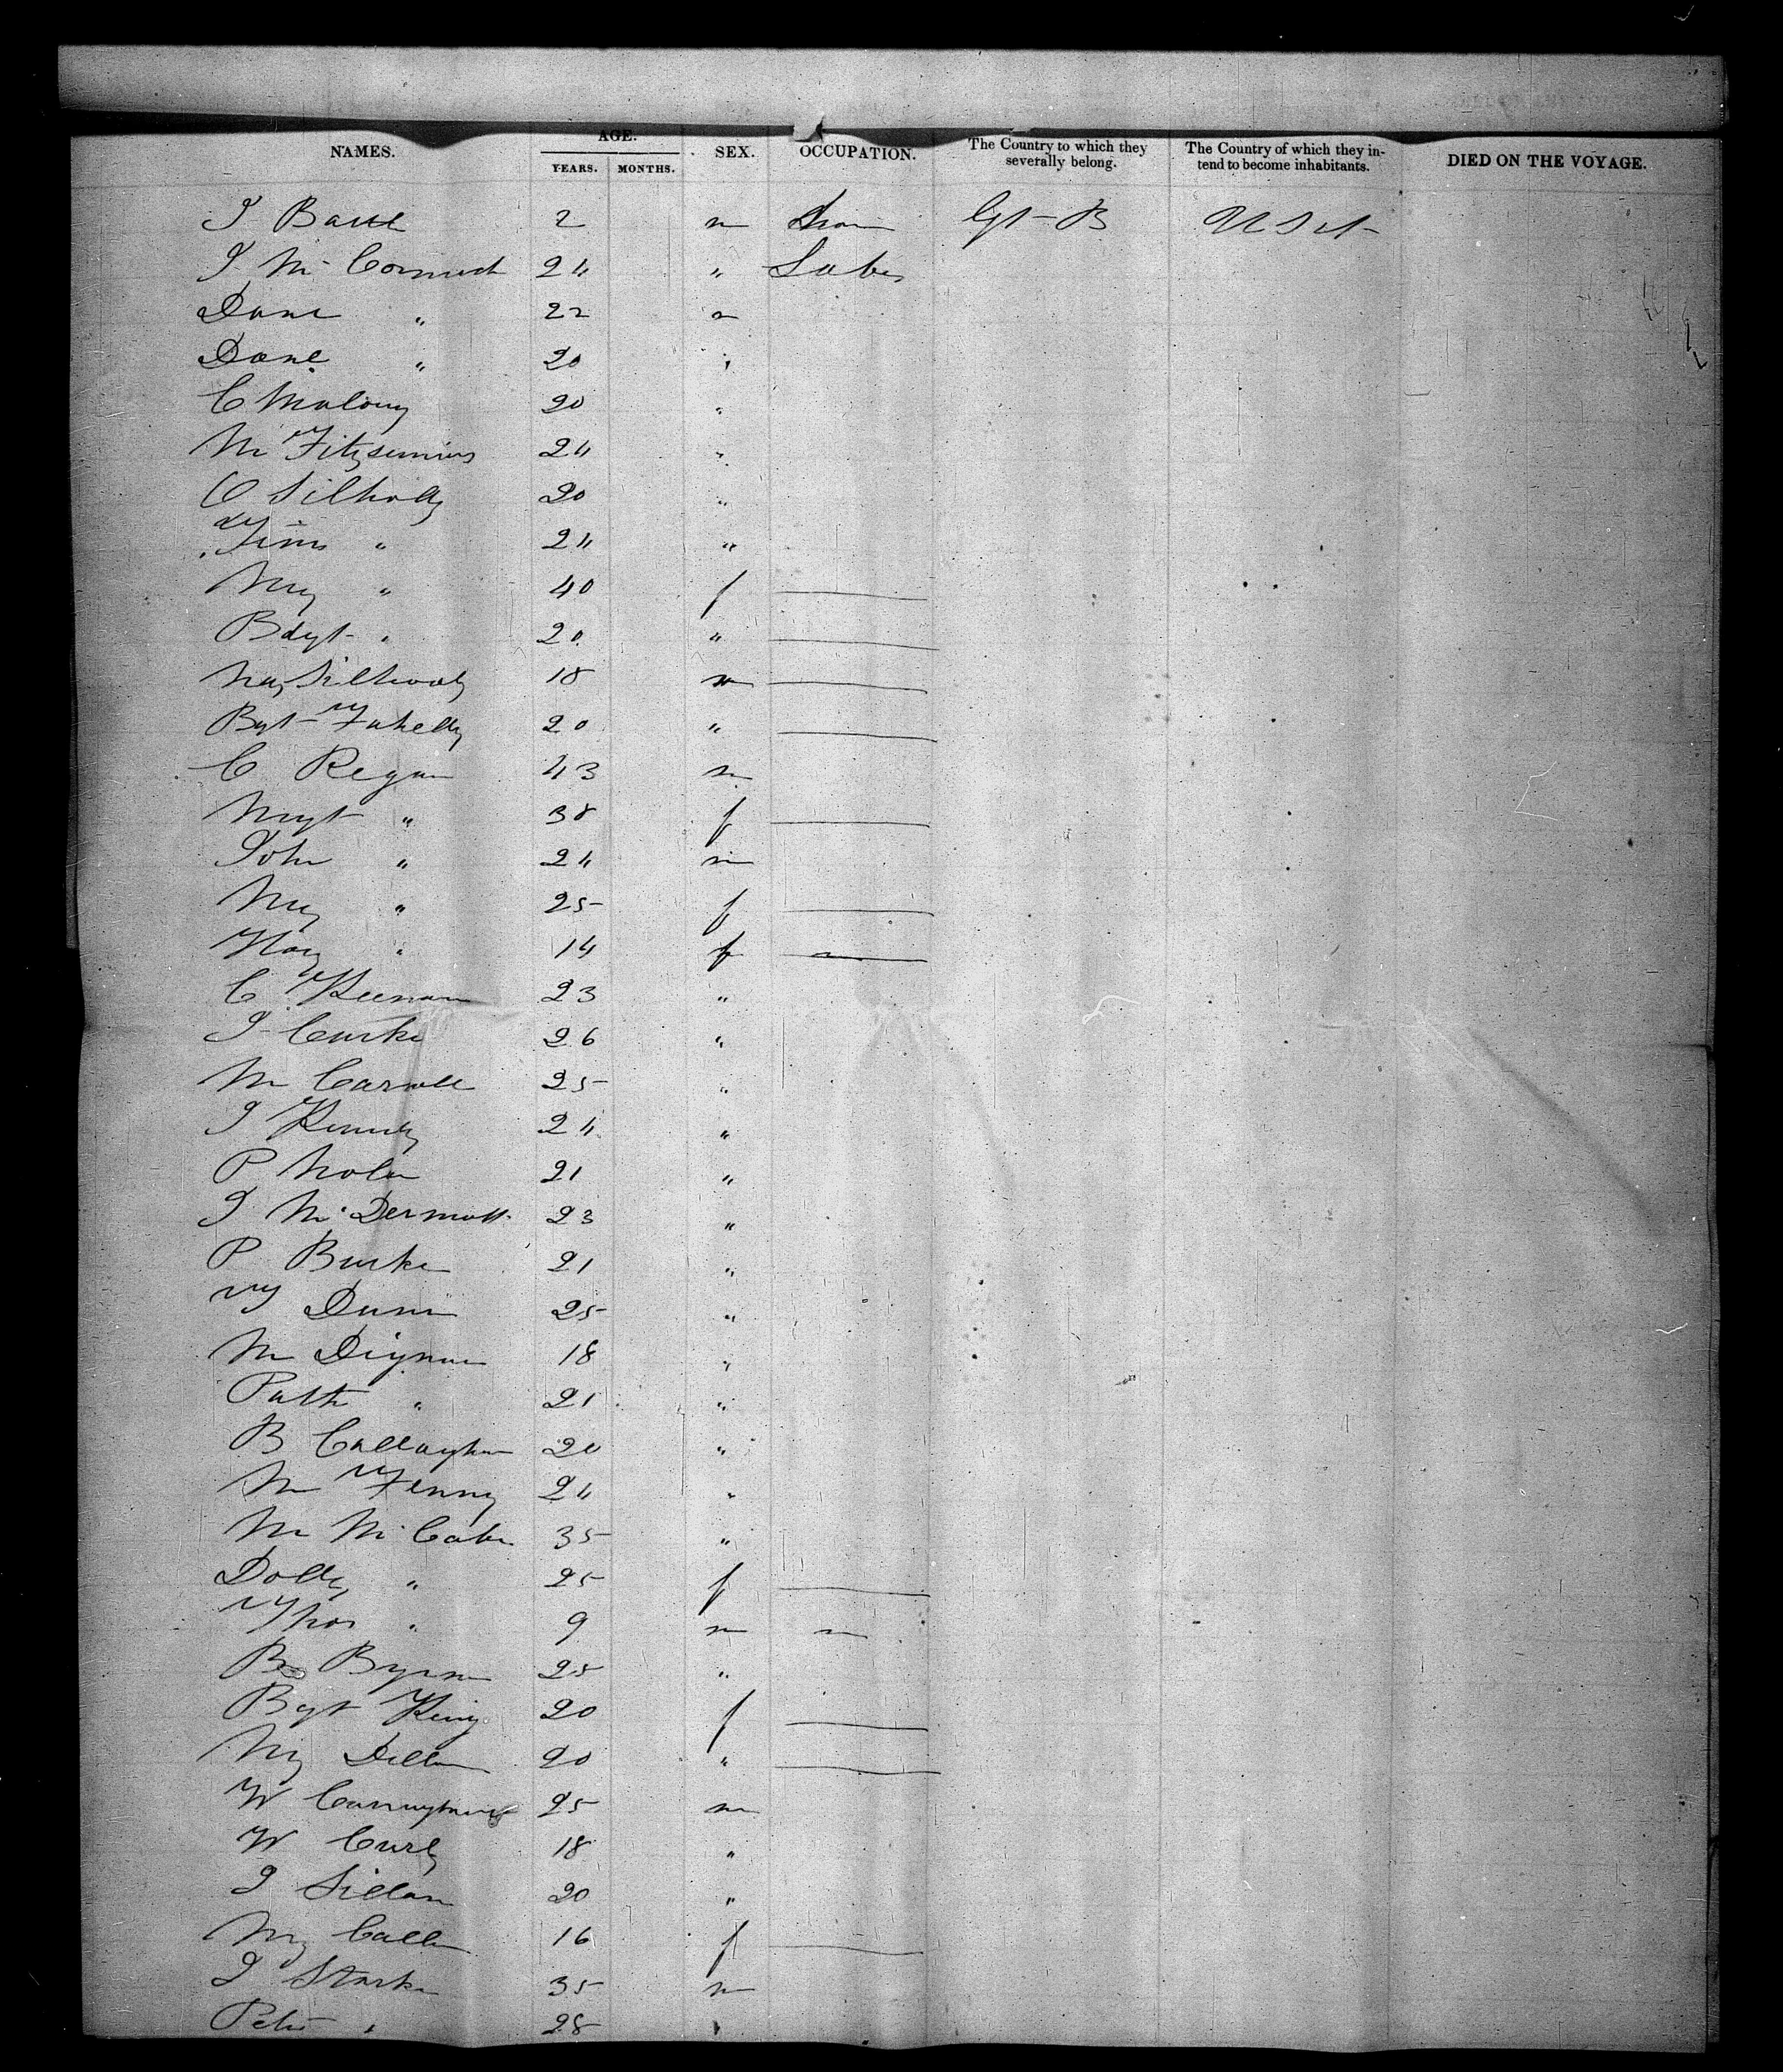 NAMES. AGE. YEARS. MONTHS. SEX. OCCUPATION. The Country to which they severally belong. The Country of which they intend to become inhabitants. DIED ON THE VOYAGE.
J 2 m Gt B U S A
J Mc Cormick 24 " Labr
" 22 m
" 20 "
C Malony 20 "
M Fitzsimins 24 "
20 "
" 24 "
My " 40 f
Bdgt " 20 "
18 m
Bgt Fahelly 20 "
C Regan 43 m
Mgt " 38 f
John " 24 m
My " 25 f
" 14 f
C Keenan 23 "
J 26 "
M Carroll 25 "
J Kennedy 24 "
P Nolan 21 "
J Mc Dermott 23 "
P Burke 21 "
T Dunn 25 "
M Dignan 18 "
Patk " 21 "
B Callaghan 20 "
M Fenny 24 "
M Mc Cabe 35 "
Dolly " 25 f
Thos " 9 m
Byrne 25 "
Bgt King 20 f
My Dillon 20 "
W 25 m
W Curly 18 "
J 20 "
My 16 f
J Stark 35 m
Peter " 28 "